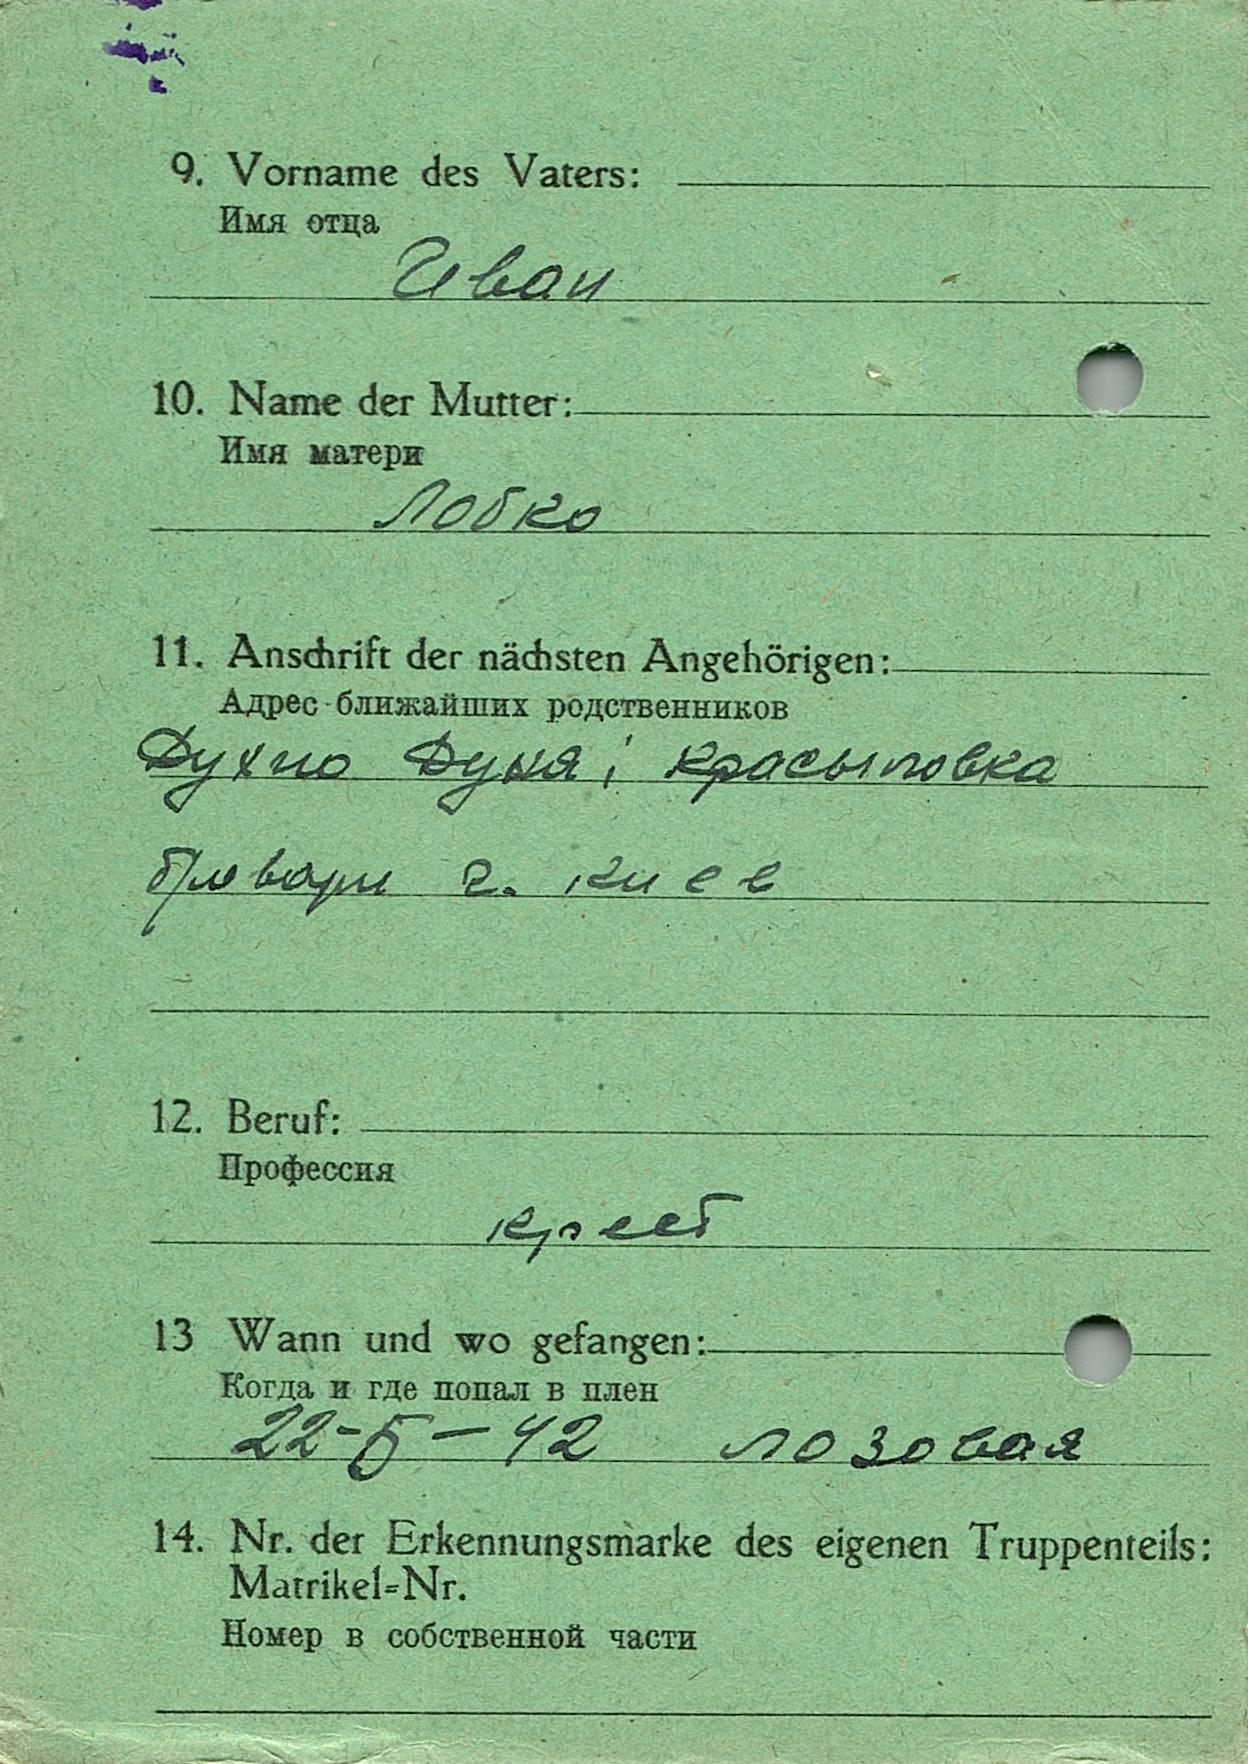 9. Vorname des Vaters:
Имя отца
Иван
10. Name der Mutter:
Имя матери
Лобко
11. Anschrift der nächsten Angehörigen:
Адрес ближайших родственников
Духно Дуня; Красыловка
г. Киев
12. Beruf:
Профессия
крест
13 Wann und wo gefangen:
Когда и где попал в плен
22-5-42 Лозовая
14. Nr. der Erkennungsmarke des eigenen Truppenteils:
Matrikel=Nr.
Номер в собственной части